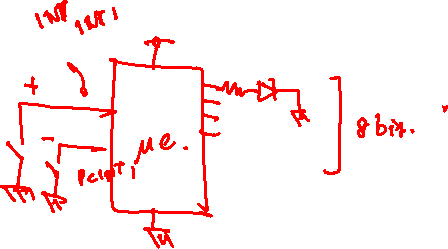 INT INT1
+
-
PCINT1
μC.
8 bit.